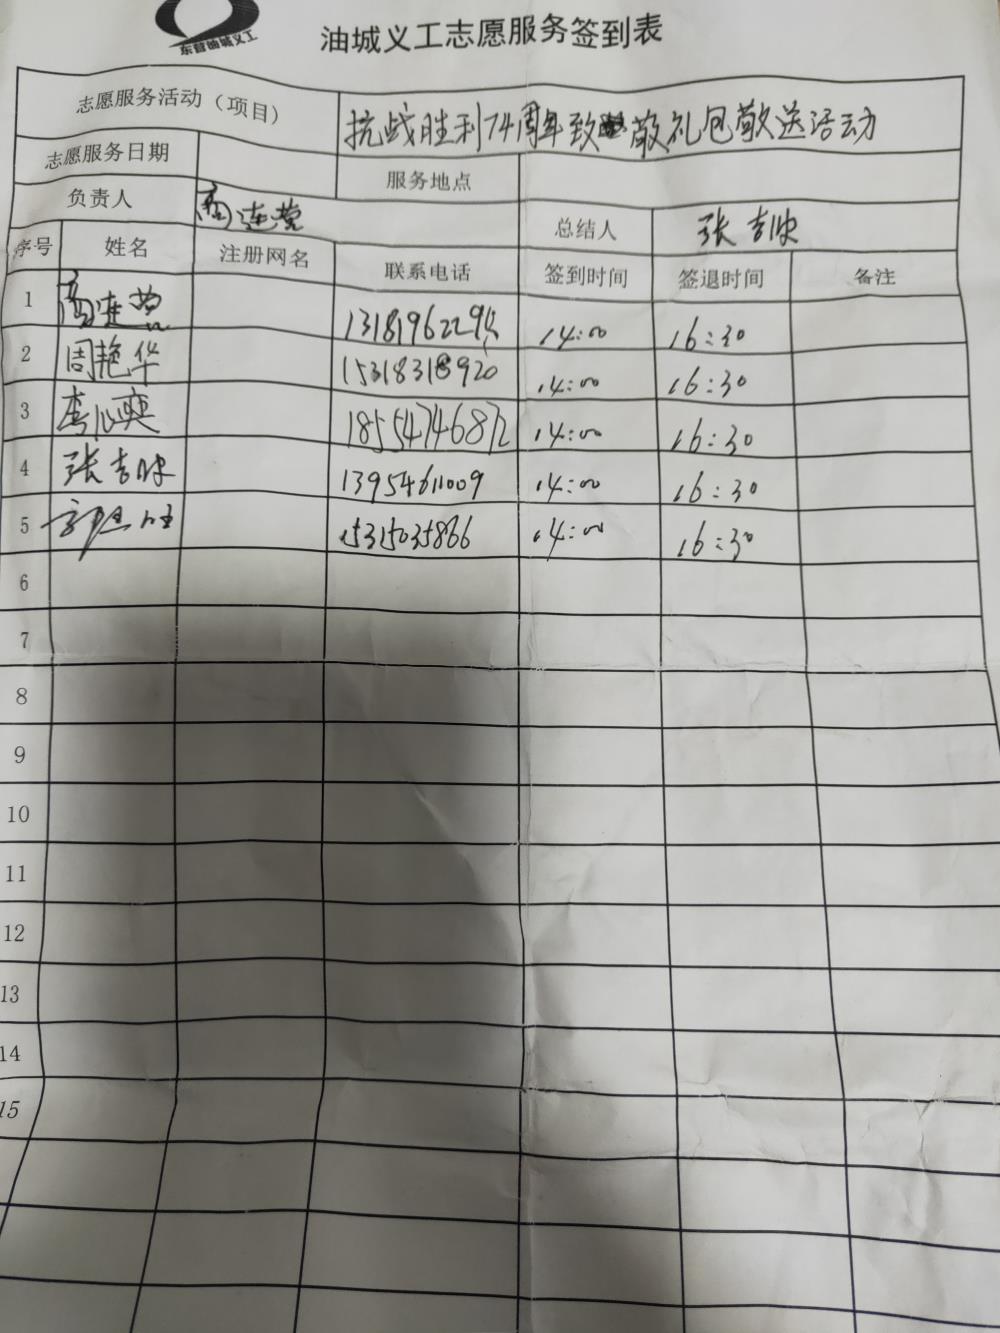 东营油城义工
油城义工志愿服务签到表
志愿服务活动（项目） 抗战胜利74周年致敬礼包敬送活动
志愿服务日期 服务地点
负责人 商连营 总结人
序号 姓名 注册网名 联系电话 签到时间 签退时间 备注
1 商连营 14:00 16:30
2 周艳华 15318318920 14:00 16:30
3 李心奕 18554746872 14:00 16:30
4 13954611009 14:00 16:30
5 15315035866 14:00 16:30
6
7
8
9
10
11
12
13
14
15